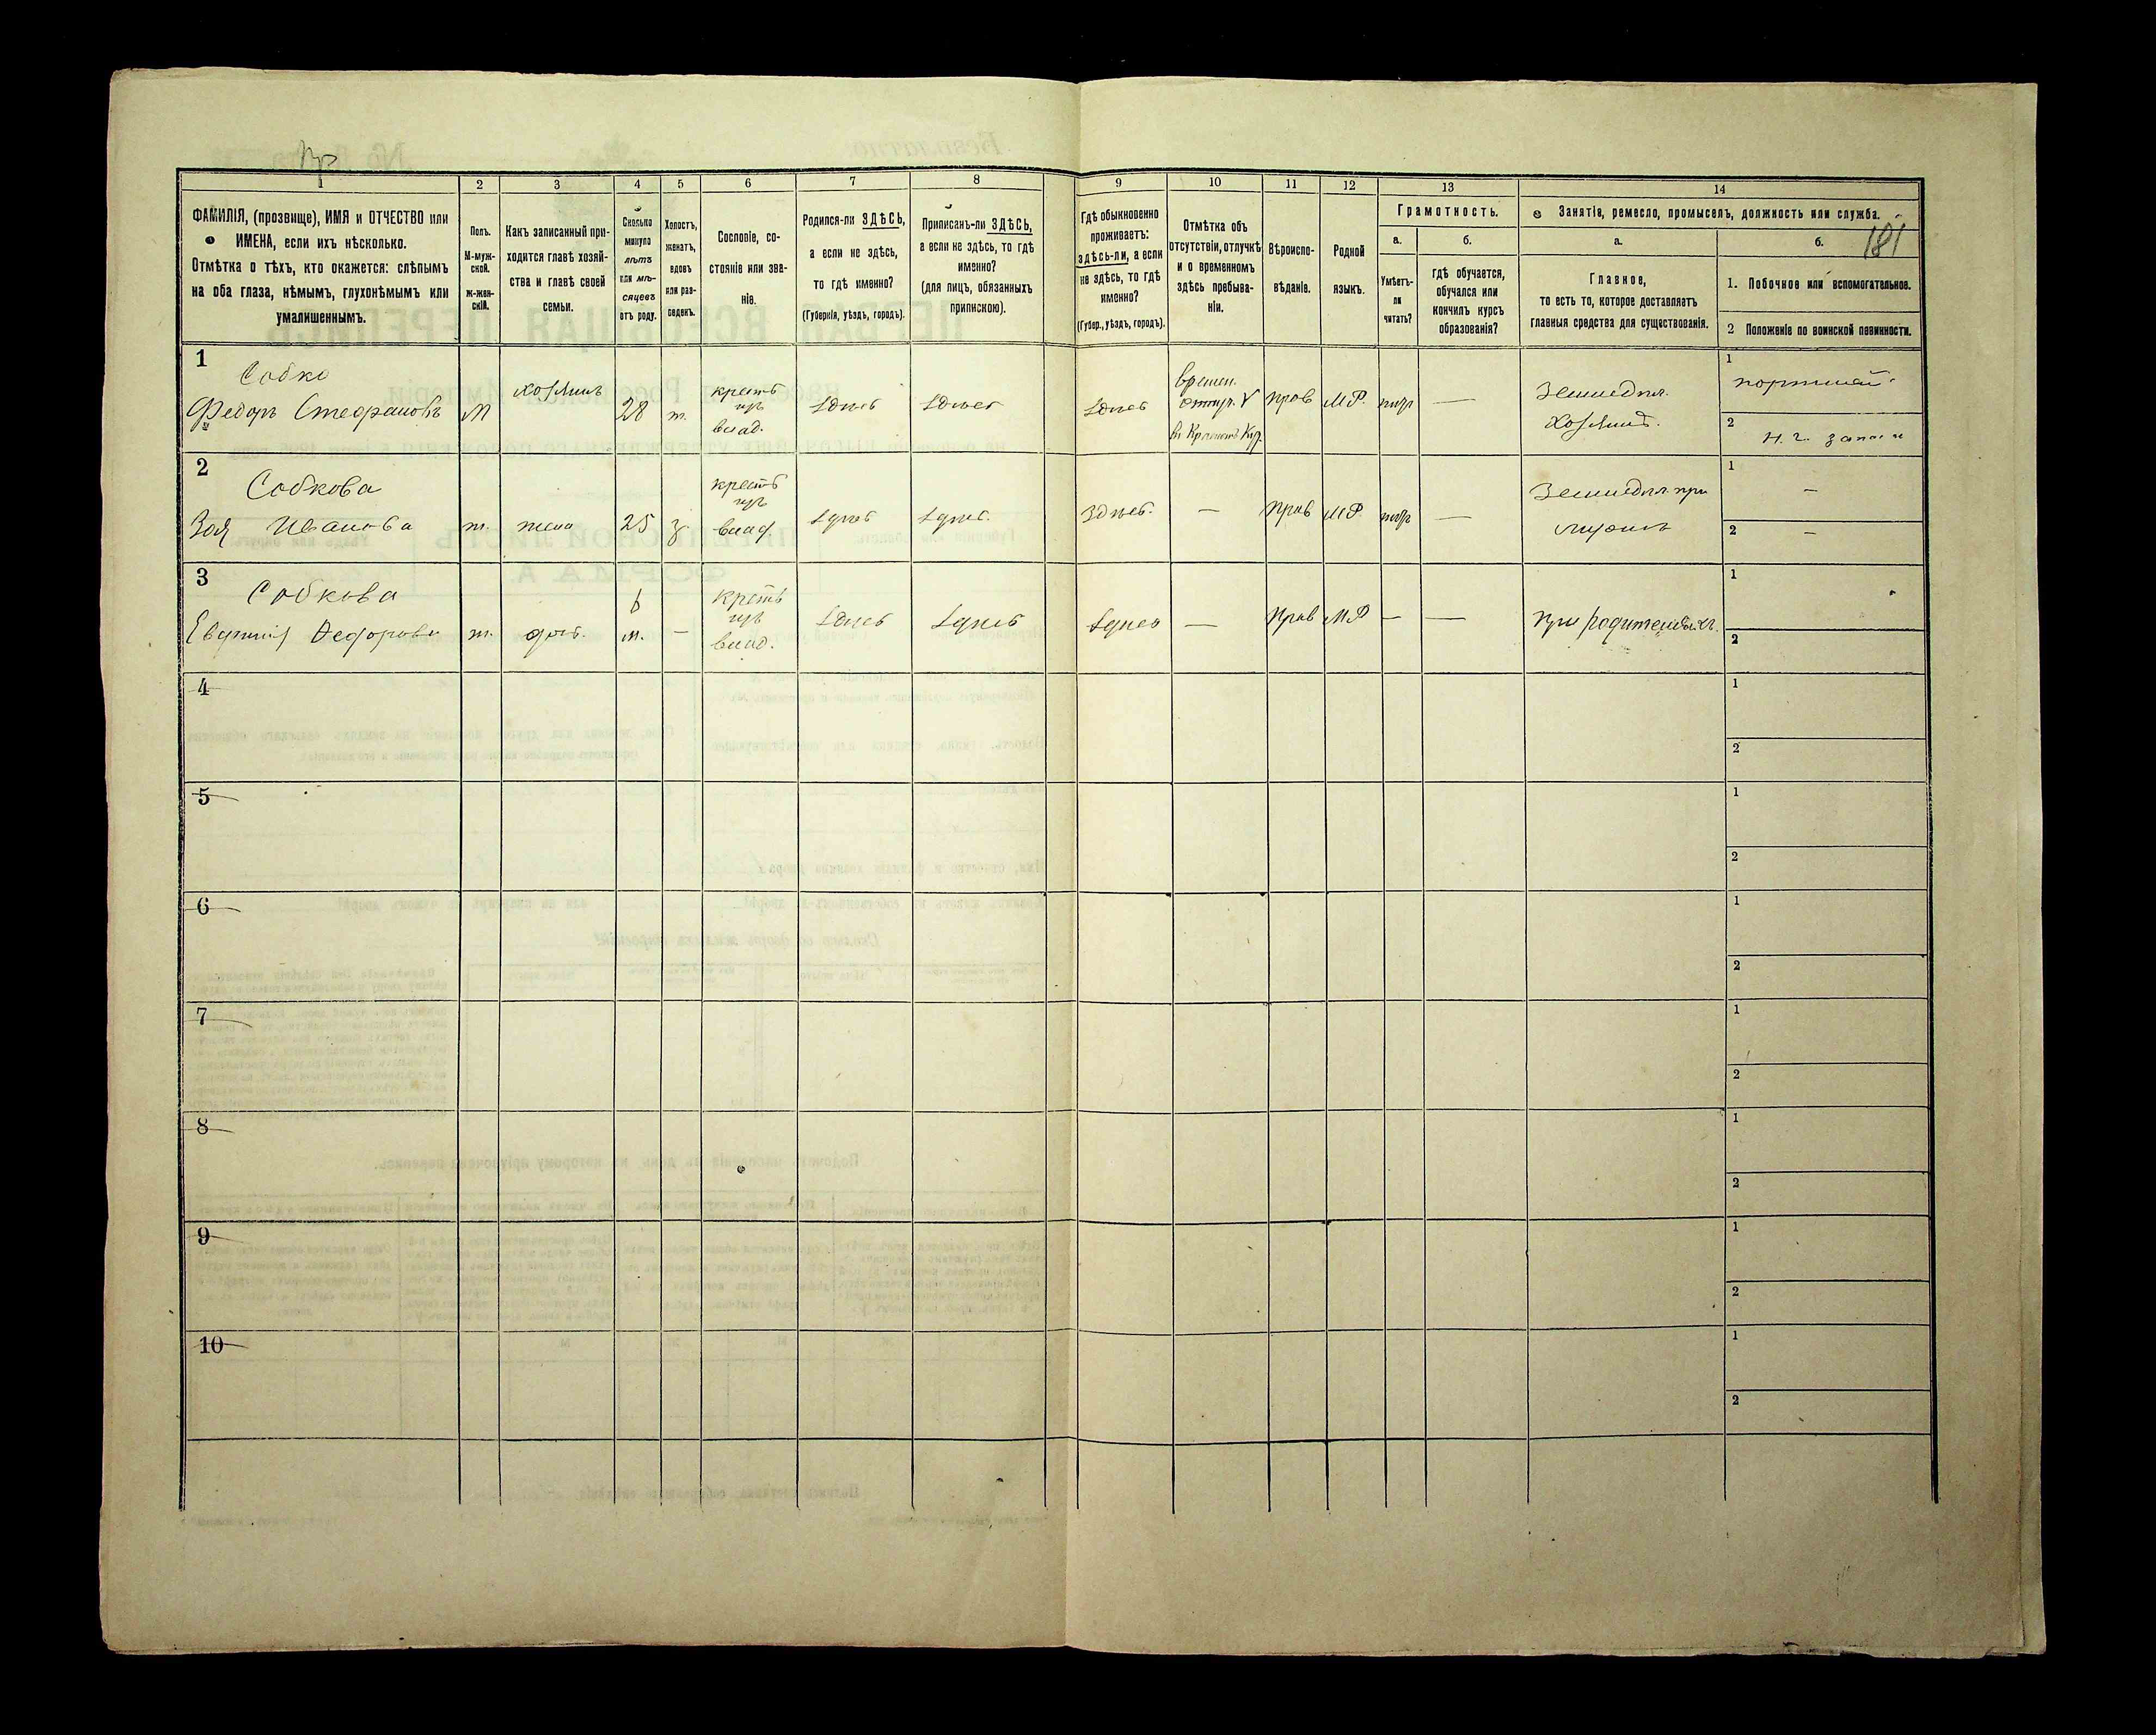 181
1 2 3 4 5 6 7 8 9 10 11 12 13 14
ФАМИЛІЯ, (прозвище), ИМЯ и ОТЧЕСТВО или
ИМЕНА, если ихъ нѣсколько.
Отмѣтка о тѣхъ, кто окажется: слѣпымъ
на оба глаза, нѣмымъ, глухонѣмымъ или
умалишеннымъ.
Полъ.
М-муж-
ской.
ж-жен-
скій.
Какъ записанный при-
ходится главѣ хозяй-
ства и главѣ своей
семьи.
Сколько
минуло
лѣтъ
или мѣ-
сяцевъ
отъ роду.
Холостъ,
женатъ,
вдовъ
или раз-
веденъ.
Сословіе, со-
стояніе или зва-
ніе.
Родился-ли ЗДѢСЬ,
а если не здѣсь,
то гдѣ именно?
(Губернія, уѣздъ, городъ).
Приписанъ-ли ЗДѢСЬ,
а если не здѣсь, то гдѣ
именно?
(для лицъ, обязанныхъ
припискою).
Гдѣ обыкновенно
проживаетъ:
здѣсь-ли, а если
не здѣсь, то гдѣ
именно?
(Губер., уѣздъ, городъ).
Отмѣтка объ
отсутствіи, отлучкѣ
и о временномъ
здѣсь пребыва-
ніи.
Вѣроиспо-
вѣданіе.
Родной
языкъ.
Грамотность.
а.
Умѣетъ-
ли
читать?
б.
гдѣ обучается,
обучался или
кончилъ курсъ
образованія?
Занятія, ремесло, промыселъ, должность или служба.
а.
Главное,
то есть то, которое доставляетъ
главныя средства для существованія.
б.
1. Побочное или вспомогательное.
2 Положеніе по воинской повинности.
1
Собко
Федоръ Стефановъ
М
хозяинъ
28
ж.
крестъ
изъ
влад.
здѣсь
здѣсь
здѣсь
времен.
отлуч. V
Прав
М.Р.
—
Земледѣл.
хозяинъ.
1
портной
2
2
Собкова
Зоя Иванова
ж.
жена
25
з.
крестъ
изъ
влад.
здѣсь
здѣсь.
здѣсь.
—
Прав
М.Р.
—
Земледѣл. при
мужѣ
1 —
2 —
3
Собкова
Федорова
ж.
дочь.
6
м.
—
крестъ
изъ
влад.
здѣсь
здѣсь
здѣсь
—
Прав
М.Р
—
—
при родителяхъ.
1
2
4
1
2
5
1
2
6
1
2
7
1
2
8
1
2
9
1
2
10
1
2